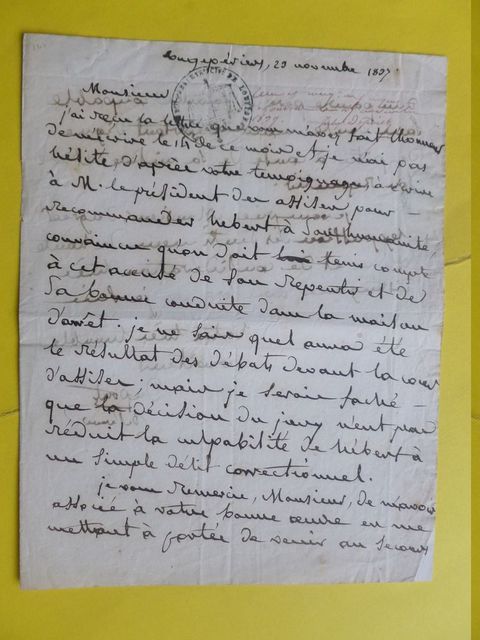 Longpérier, 29 novembre 1837
Monsieur
j'ai reçu la lettre que vous m'avez fait l'honneur
de m'écrire le 14 de ce mois et je n'ai pas
hésité d'après votre temoignage, à écrire
à M. le président des assises pour -
recommander hébert à son humanité
convaincu qu'on doit tenir compte
à cet accusé de son repentir et de
sa bonne conduite dans la maison
d'arrêt. je ne sais quel aura été
le résultat des débats devant la cour
d'assises; mais je serois faché -
que la décision du jury n'eut pas
réduit la culpabilité de hébert à
un simple délit correctionnel.
je vous remercie, Monsieur, de m'avoir
associé à votre bonne œuvre en me
mettant à portée de venir au secours